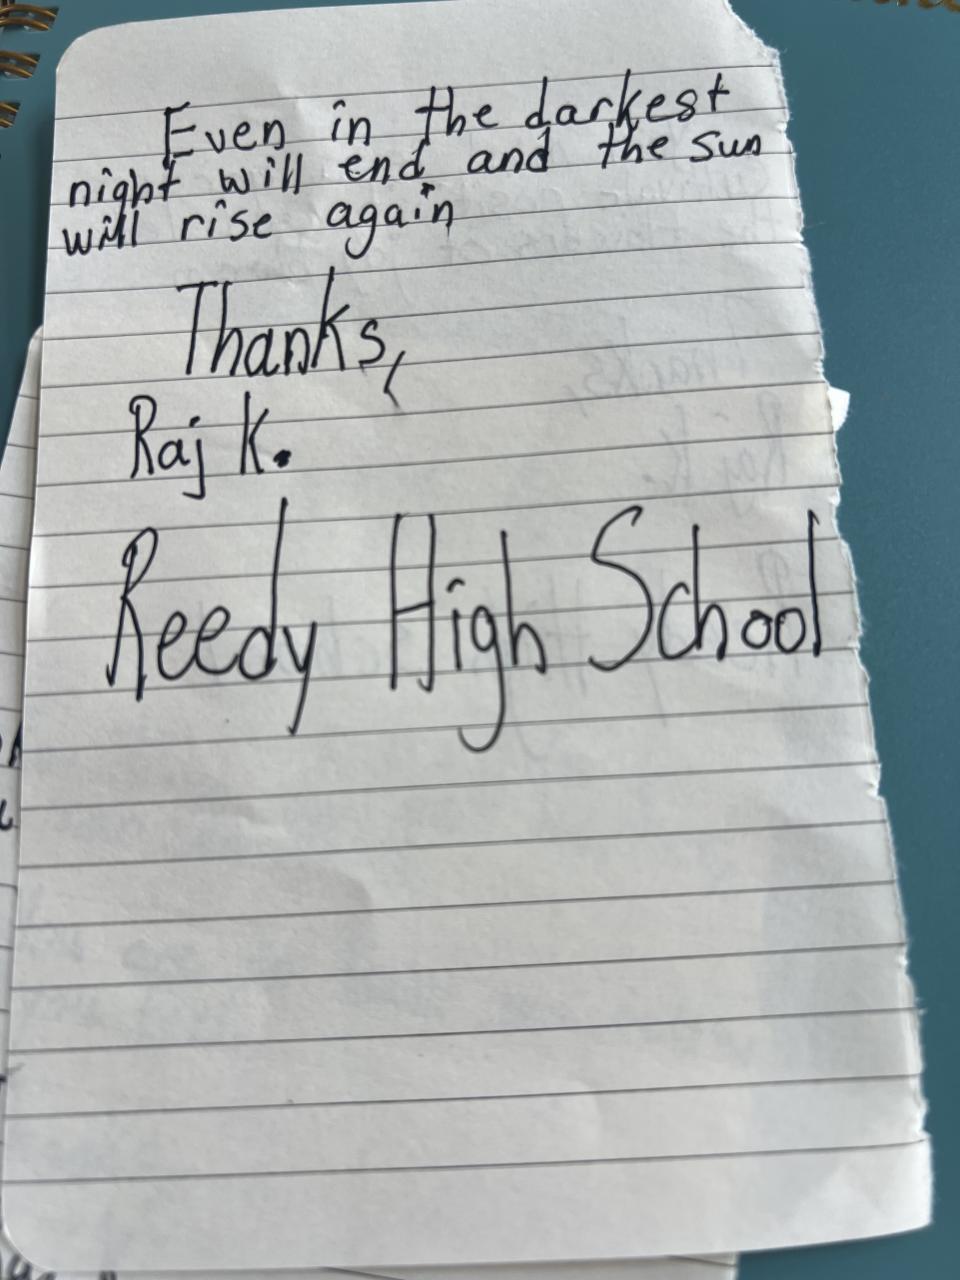 Even in the darkest
night will end and the sun
will rise again
Thanks,
Raj K.
Reedy High School